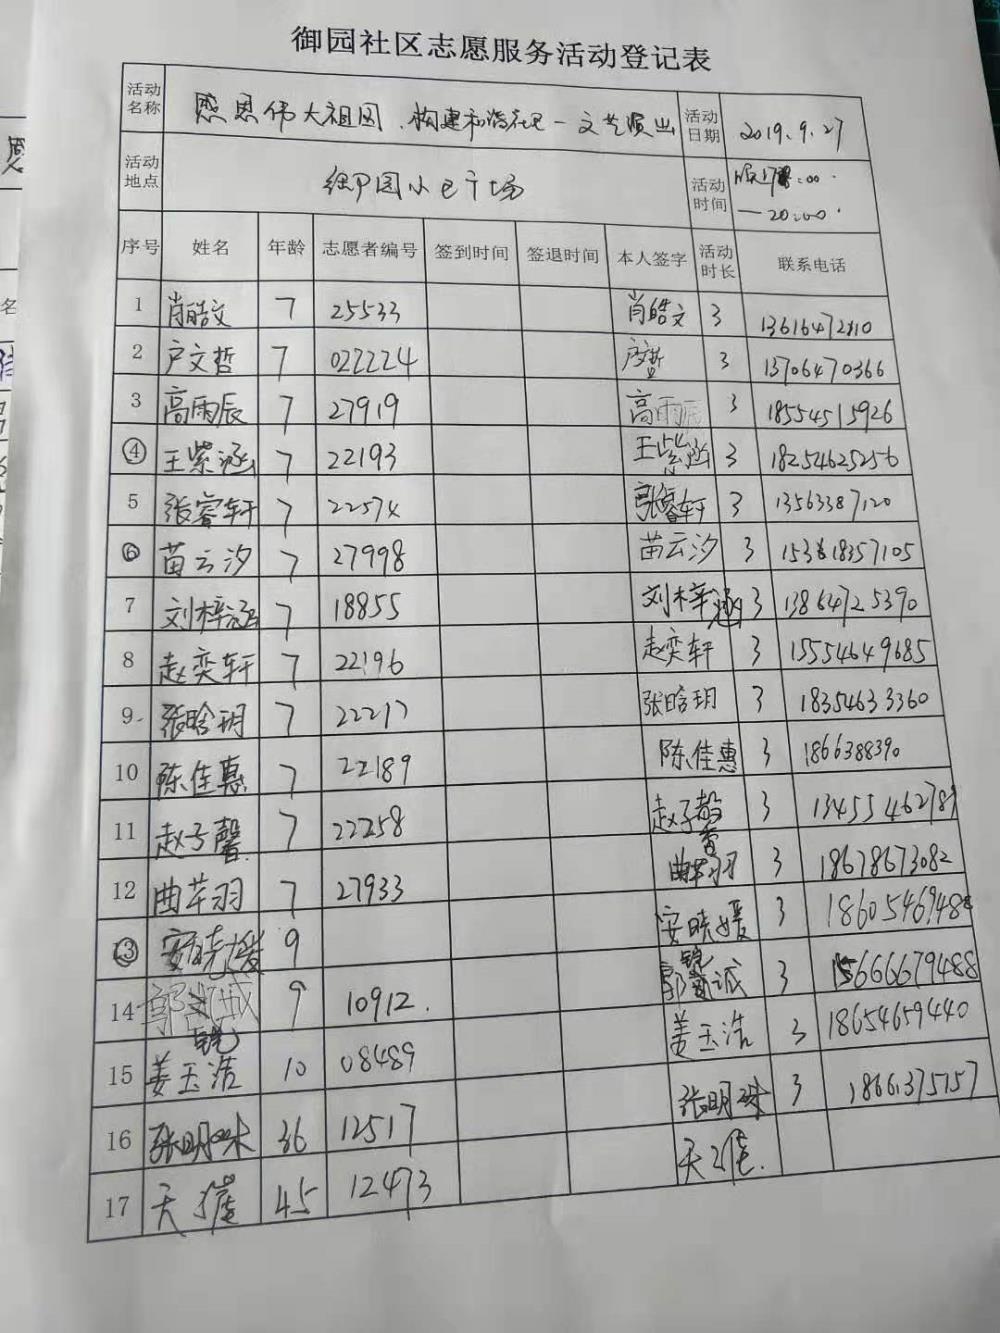 御园社区志愿服务活动登记表
活动名称 感恩伟大祖国、构建和谐社区-文艺演出 活动日期 2019.9.27
活动地点 小区广场 活动时间
—20:00
序号 姓名 年龄 志愿者编号 签到时间 签退时间 本人签字 活动时长 联系电话
1 肖皓文 7 25533 肖皓文 3
2 卢文哲 7 022224 3 13706470366
3 高雨辰 7 27919 高雨辰 3 18554515926
4 王紫涵 7 22193 王紫涵 3 18254625256
5 张睿轩 7 22574 张睿轩 3 13563387120
6 苗云汐 7 27998 苗云汐 3
7 刘梓涵 7 18855 刘梓涵 3 13864725390
8 赵奕轩 7 22196 赵奕轩 3 15554649685
9 张晗玥 7 22217 张晗玥 3 18354633360
10 陈佳惠 7 22189 陈佳惠 3 186638839
11 赵子馨 7 22258 赵子馨 3
12 曲芊羽 7 27933 曲芊羽 3 18678673082
13 安晓媛 9 安晓媛 3
14 9 10912. 3 15666679488
15 姜玉浩 10 08489 姜玉浩 3 18654659440
16 36 12517 3 1866375157
17 45 12473